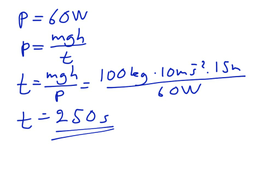 P = 60W
P = mgh / t
t = mgh / P = 100kg · 10ms⁻² · 15m / 60W
t = 250s